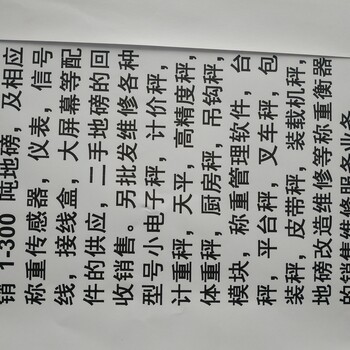 销 1-300 吨地磅，及相应
称重传感器，仪表，信号
线，接线盒，大屏幕等配
件的供应，二手地磅的回
收销售。另批发维修各种
型号小电子秤，计价秤，
计重秤，天平，高精度秤，
体重秤，厨房秤，吊钩秤，
模块，称重管理软件，台
秤，平台秤，叉车秤，包
装秤，皮带秤，装载机秤，
地磅改造维修等称重衡器
的销售维修服务业务